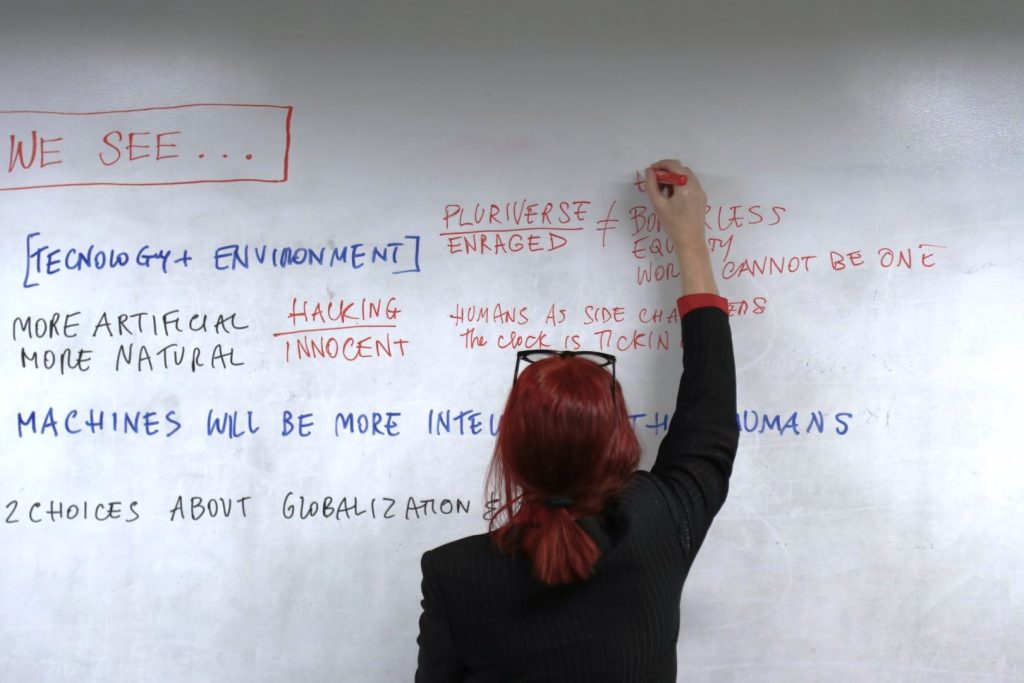 WE SEE...
[TECNOLOGY + ENVIRONMENT]
PLURIVERSE ≠
ENRAGED
CANNOT BE ONE
MORE ARTIFICIAL
MORE NATURAL
HACKING
INNOCENT
HUMANS AS SIDE
the clock IS
MACHINES WILL BE MORE
2 CHOICES ABOUT GLOBALIZATION &